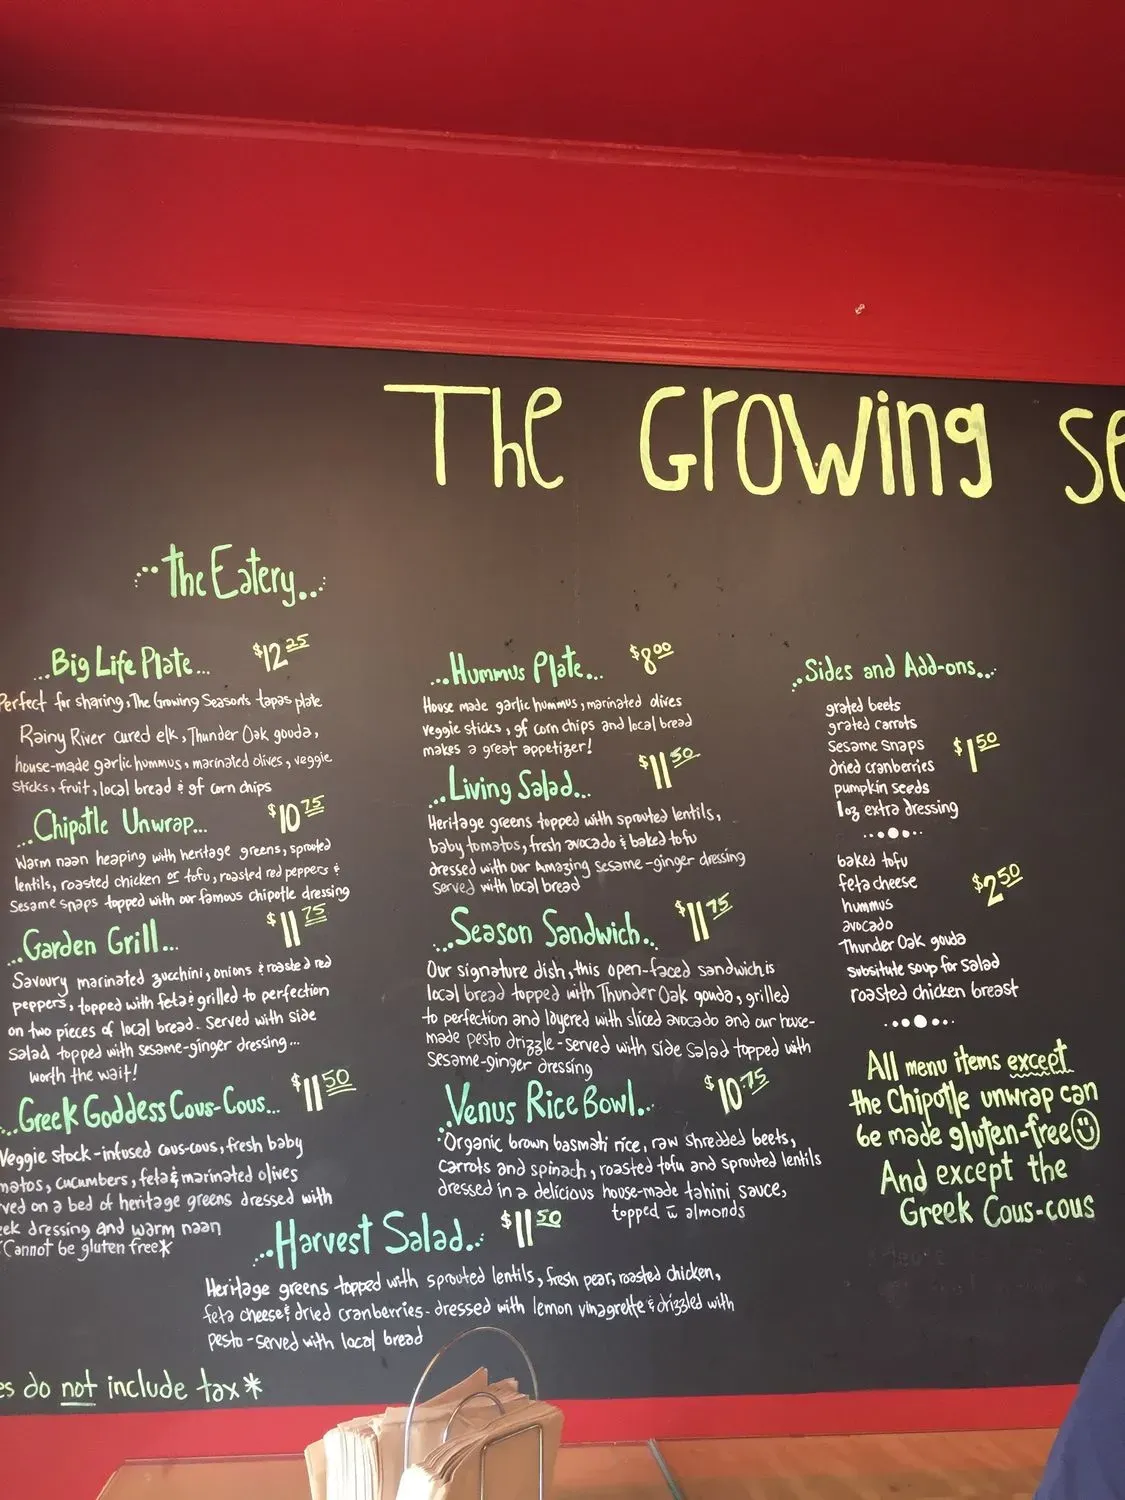 The Growing Se
The Eatery
...Big Life Plate... $12.25
Perfect for sharing, The Growing Season's tapas plate
Rainy River cured elk, Thunder Oak gouda,
house-made garlic hummus, marinated olives, veggie
sticks, fruit, local bread & gf corn chips
...Chipotle Unwrap... $10.75
Warm naan heaping with heritage greens, sprouted
lentils, roasted chicken or tofu, roasted red peppers &
sesame snaps topped with our famous chipotle dressing
...Garden Grill... $11.75
Savoury marinated zucchini, onions & roasted red
peppers, topped with feta & grilled to perfection
on two pieces of local bread. Served with side
salad topped with sesame-ginger dressing...
worth the wait!
...Greek Goddess Cous-Cous... $11.50
Veggie stock-infused cous-cous, fresh baby
matos, cucumbers, feta & marinated olives
ved on a bed of heritage greens dressed with
eek dressing and warm naan
*Cannot be gluten free*
...Hummus Plate... $8.00
House made garlic hummus, marinated olives
veggie sticks, gf corn chips and local bread
makes a great appetizer!
...Living Salad... $11.50
Heritage greens topped with sprouted lentils,
baby tomatos, fresh avocado & baked tofu
dressed with our Amazing sesame-ginger dressing
served with local bread
...Season Sandwich... $11.75
Our signature dish, this open-faced sandwich is
local bread topped with Thunder Oak gouda, grilled
to perfection and layered with sliced avocado and our house-
made pesto drizzle - served with side salad topped with
sesame-ginger dressing
...Venus Rice Bowl... $10.75
Organic brown basmati rice, raw shredded beets,
carrots and spinach, roasted tofu and sprouted lentils
dressed in a delicious house-made tahini sauce,
topped w almonds
...Harvest Salad... $11.50
Heritage greens topped with sprouted lentils, fresh pear, roasted chicken,
feta cheese & dried cranberries - dressed with lemon vinagrette & drizzled with
pesto - served with local bread
es do not include tax*
...Sides and Add-ons...
grated beets
grated carrots
sesame snaps $1.50
dried cranberries
pumpkin seeds
1oz extra dressing
baked tofu
feta cheese $2.50
hummus
avocado
Thunder Oak gouda
subsitute soup for salad
roasted chicken breast
All menu items except
the Chipotle unwrap can
be made gluten-free
And except the
Greek Cous-cous